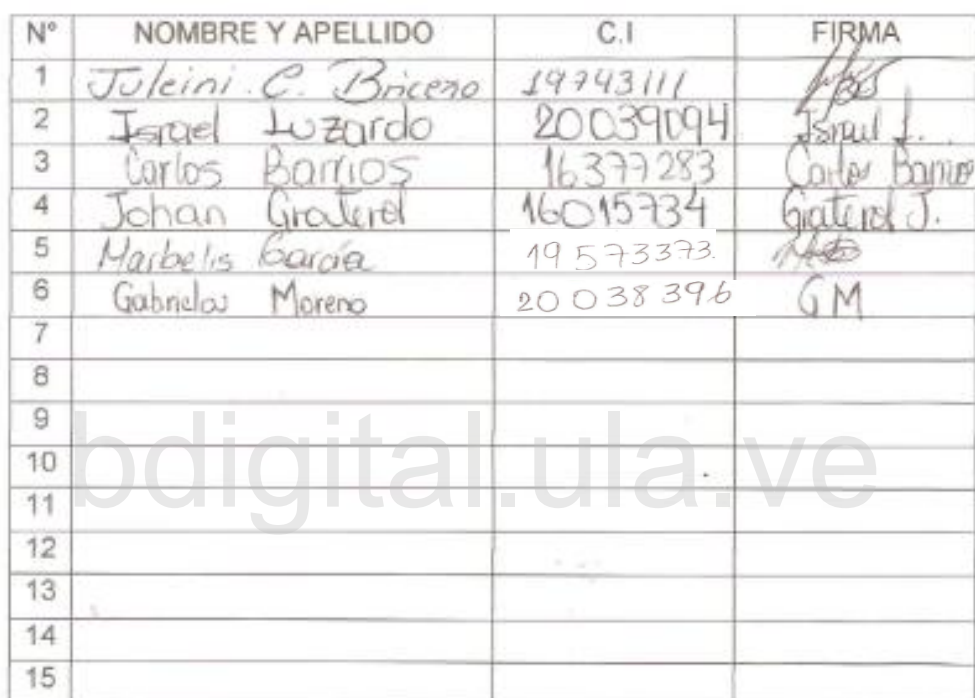 Nº NOMBRE Y APELLIDO C.I FIRMA
1 Juleini. C. Briceno 19743111
2 Israel Luzardo 20039094 Israel L.
3 Carlos Barrios 16377283 Carlos Barrios
4 Johan Graterol 16015734 Graterol J.
5 Marbelis García 19573373.
6 Gabriela Moreno 20038396 GM
7
8
9
bdigital.ula.ve
10
11
12
13
14
15